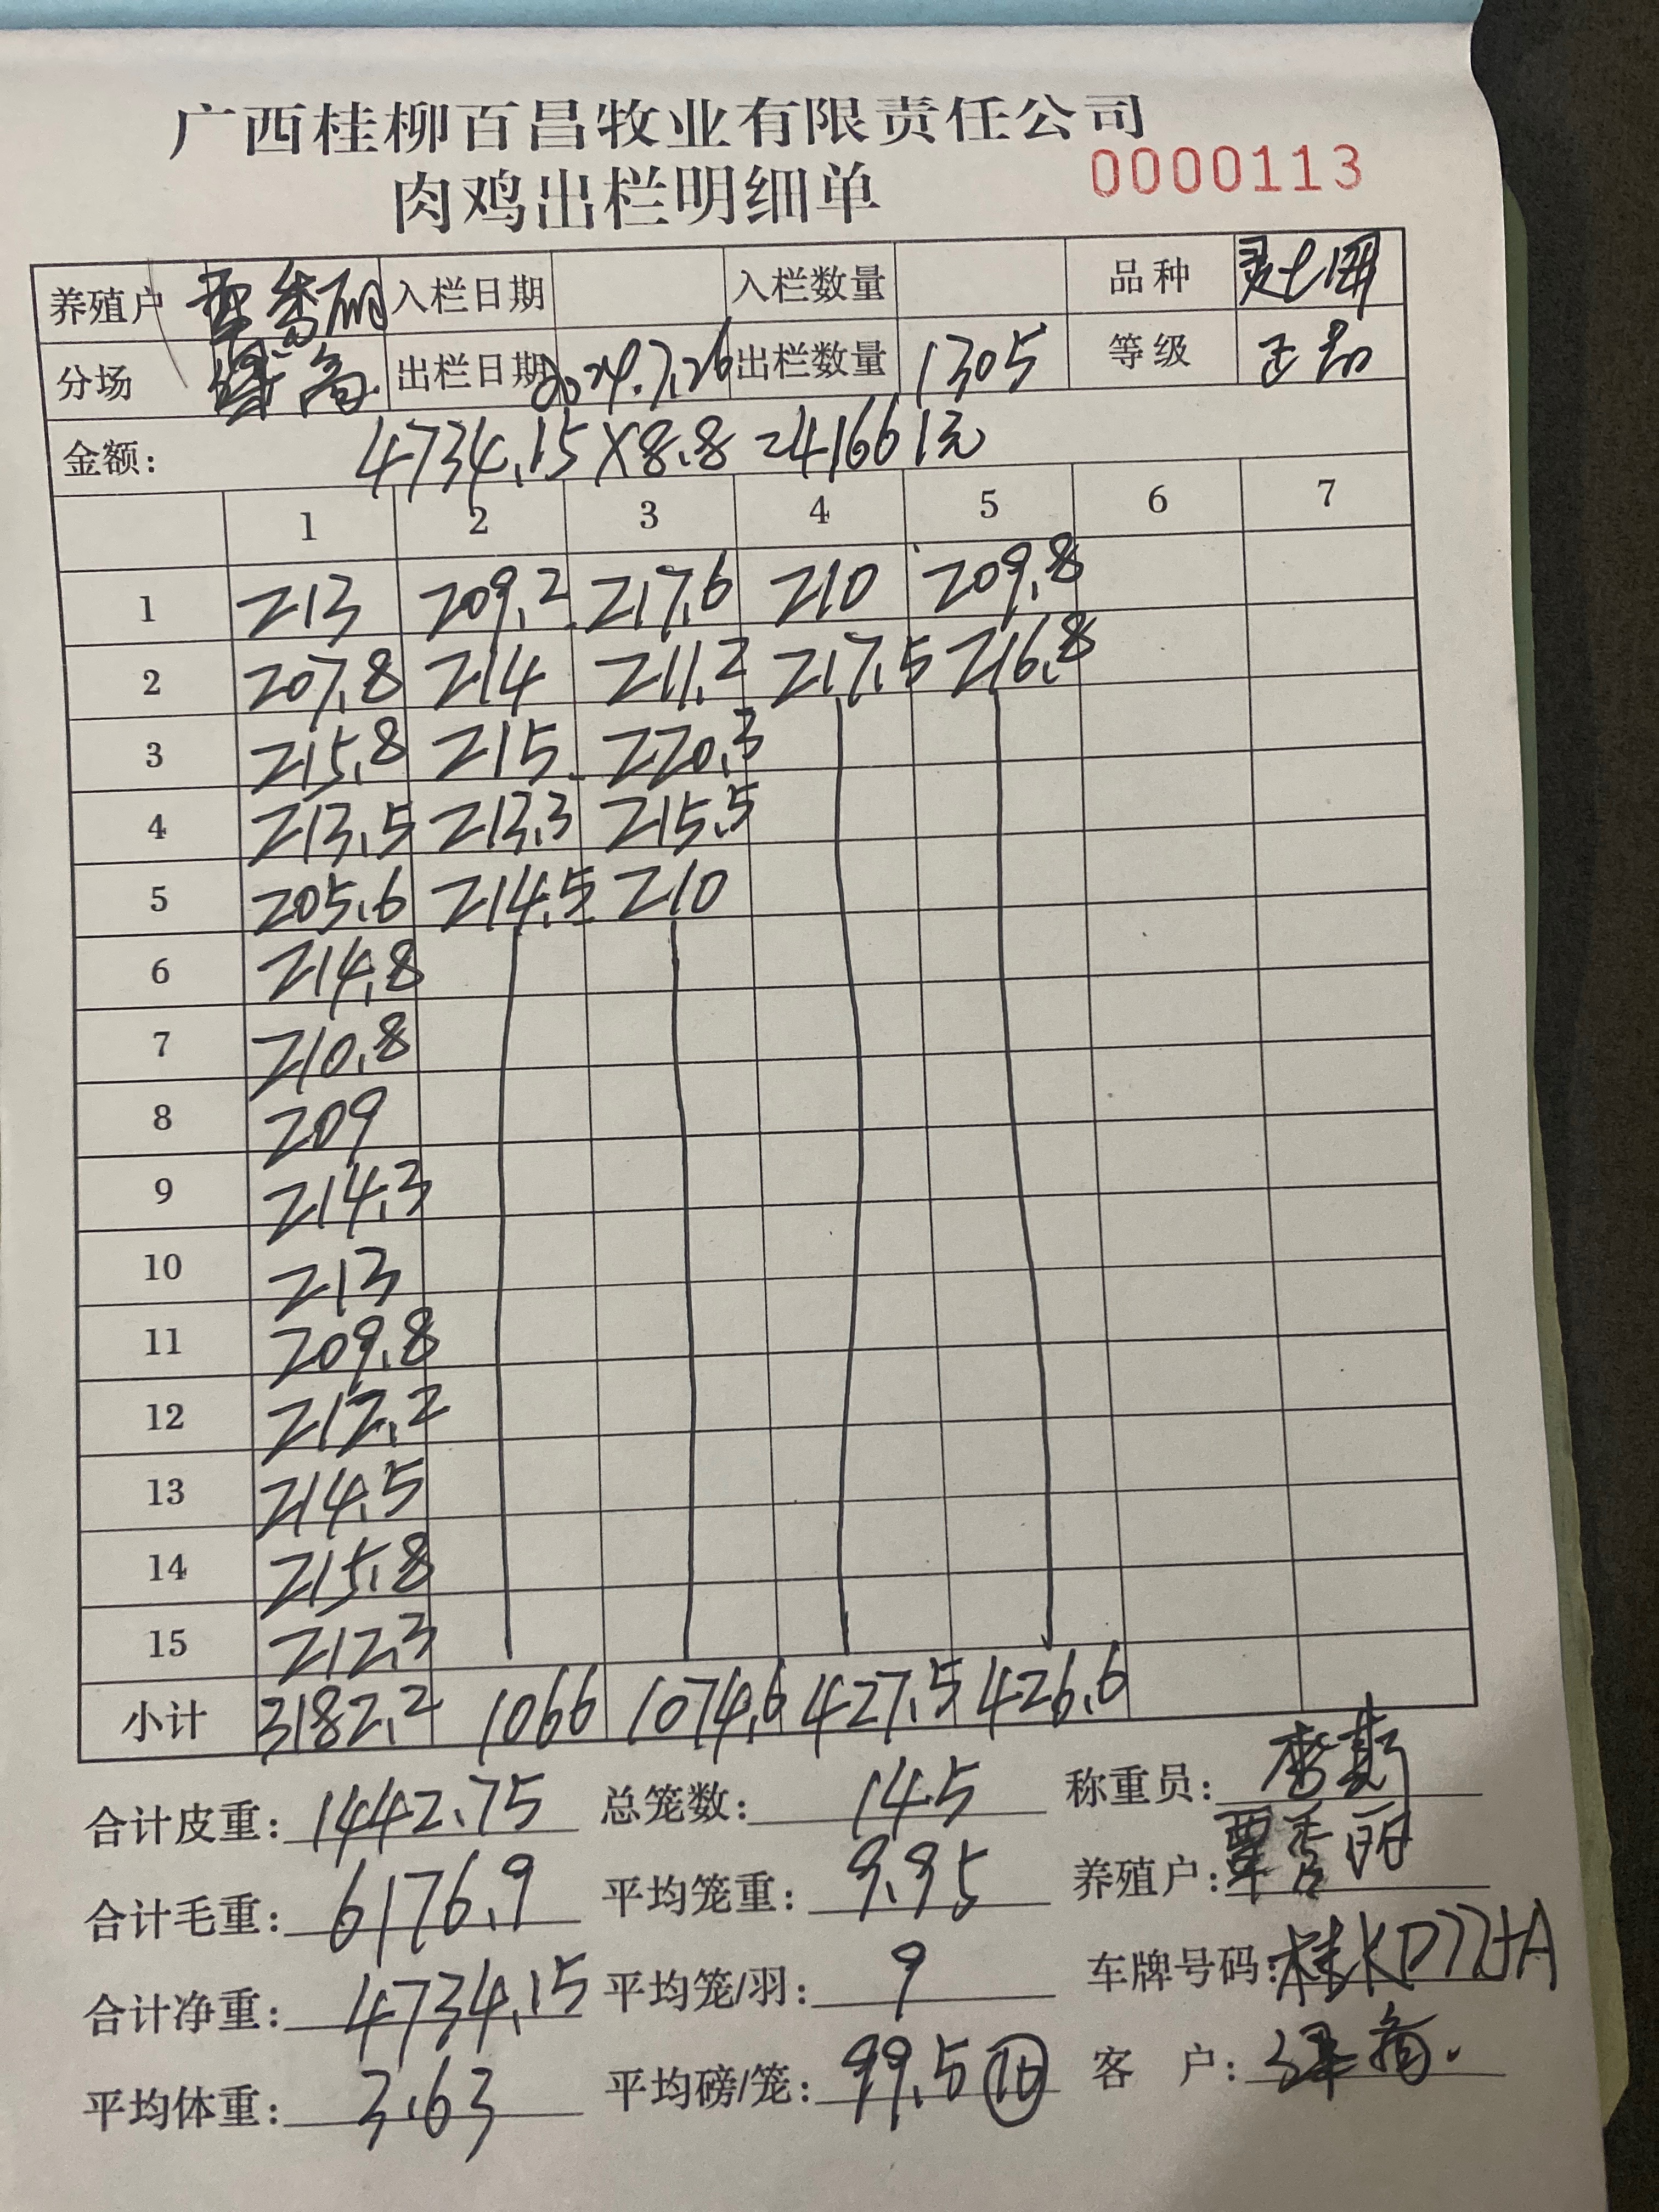 广西桂柳百昌牧业有限责任公司
肉鸡出栏明细单 0000113
养殖户 覃香丽 入栏日期 入栏数量 品种
分场 出栏日期 2024.7.26 出栏数量 1305 等级 正品
金额: 4734.15×8.8=41661元
1 2 3 4 5 6 7
1 213 209.2 217.6 210 209.8
2 207.8 214 211.2 217.5 216.8
3 215.8 215 220.3
4 213.5 213.3 215.5
5 205.6 214.5 210
6 214.8
7 210.8
8 209
9 214.3
10 213
11 209.8
12 212.2
13 214.5
14 215.8
15 212.3
小计 3182.2 1066 1074.6 427.5 426.6
合计皮重: 1442.75 总笼数: 145 称重员:
合计毛重: 6176.9 平均笼重: 9.95 养殖户: 覃香丽
合计净重: 4734.15 平均笼/羽: 9 车牌号码:
平均体重: 3.63 平均磅/笼: 99.5 10 客 户: